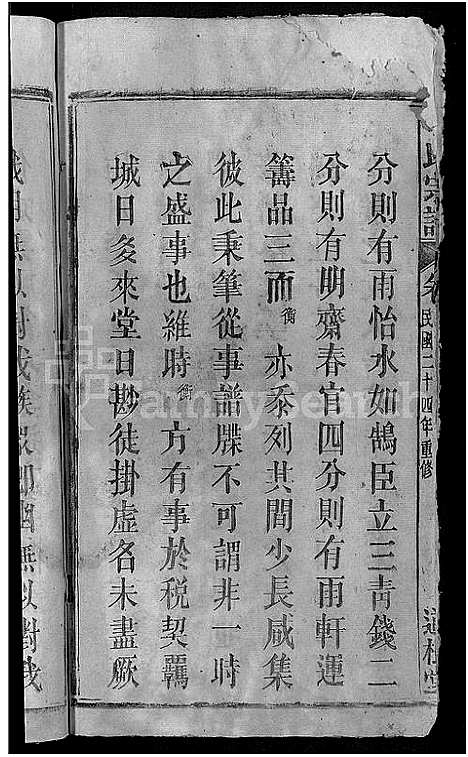 氏宗譜
民國二十四年重修
分則有雨怡水如鵠臣立三靑錢二
分則有明齋春官四分則有雨軒運
籌品三而衡亦忝列其間少長咸集
彼此秉筆從事譜牒不可謂非一時
之盛事也維時衡方有事於税契羈
城日多來堂日尠徒掛虛名未盡厥
FamilySearch